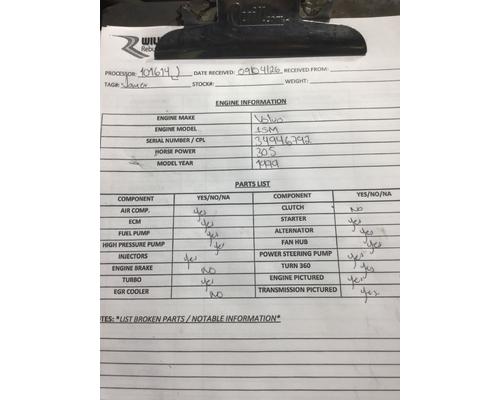 WILL
Rebu
PROCESSOR: 101614 J DATE RECEIVED: 09/04/26 RECEIVED FROM:
TAG#: STOCK#: WEIGHT:
ENGINE INFORMATION
ENGINE MAKE Volvo
ENGINE MODEL ISM
SERIAL NUMBER / CPL 34946792
HORSE POWER 305
MODEL YEAR 1999
PARTS LIST
COMPONENT YES/NO/NA COMPONENT YES/NO/NA
AIR COMP. yes CLUTCH NO
ECM yes STARTER yes
FUEL PUMP yes ALTERNATOR yes
HIGH PRESSURE PUMP yes FAN HUB yes
INJECTORS yes POWER STEERING PUMP yes
ENGINE BRAKE NO TURN 360 yes
TURBO yes ENGINE PICTURED yes
EGR COOLER NO TRANSMISSION PICTURED yes
TES: *LIST BROKEN PARTS / NOTABLE INFORMATION*